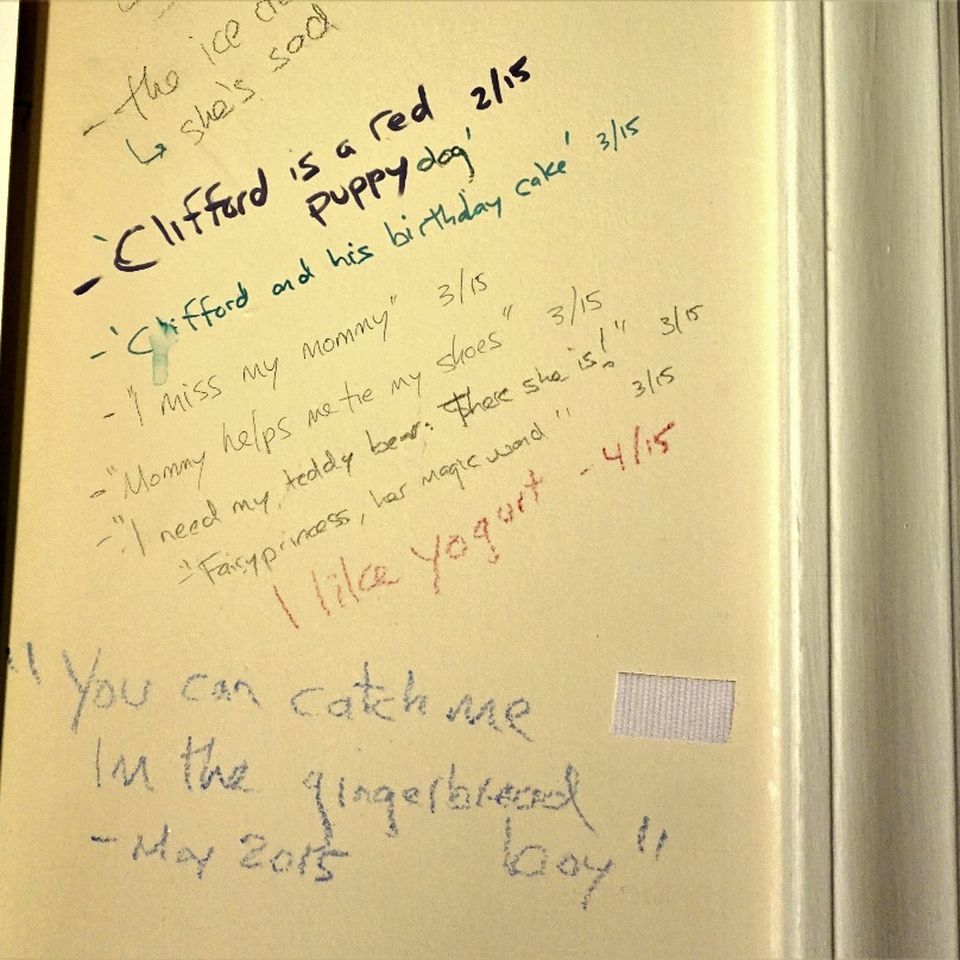 - the ice
↳ she's sad
- 'Clifford is a red 2/15
puppy dog'
- 'Clifford and his birthday cake' 3/15
- "I miss my mommy" 3/15
- "Mommy helps me tie my shoes" 3/15
- "I need my teddy bear. There she is!" 3/15
- "Fairyprincess, her magic wand" 3/15
I like yogurt - 4/15
"You can catch me
In the gingerbread
- May 2015 boy"